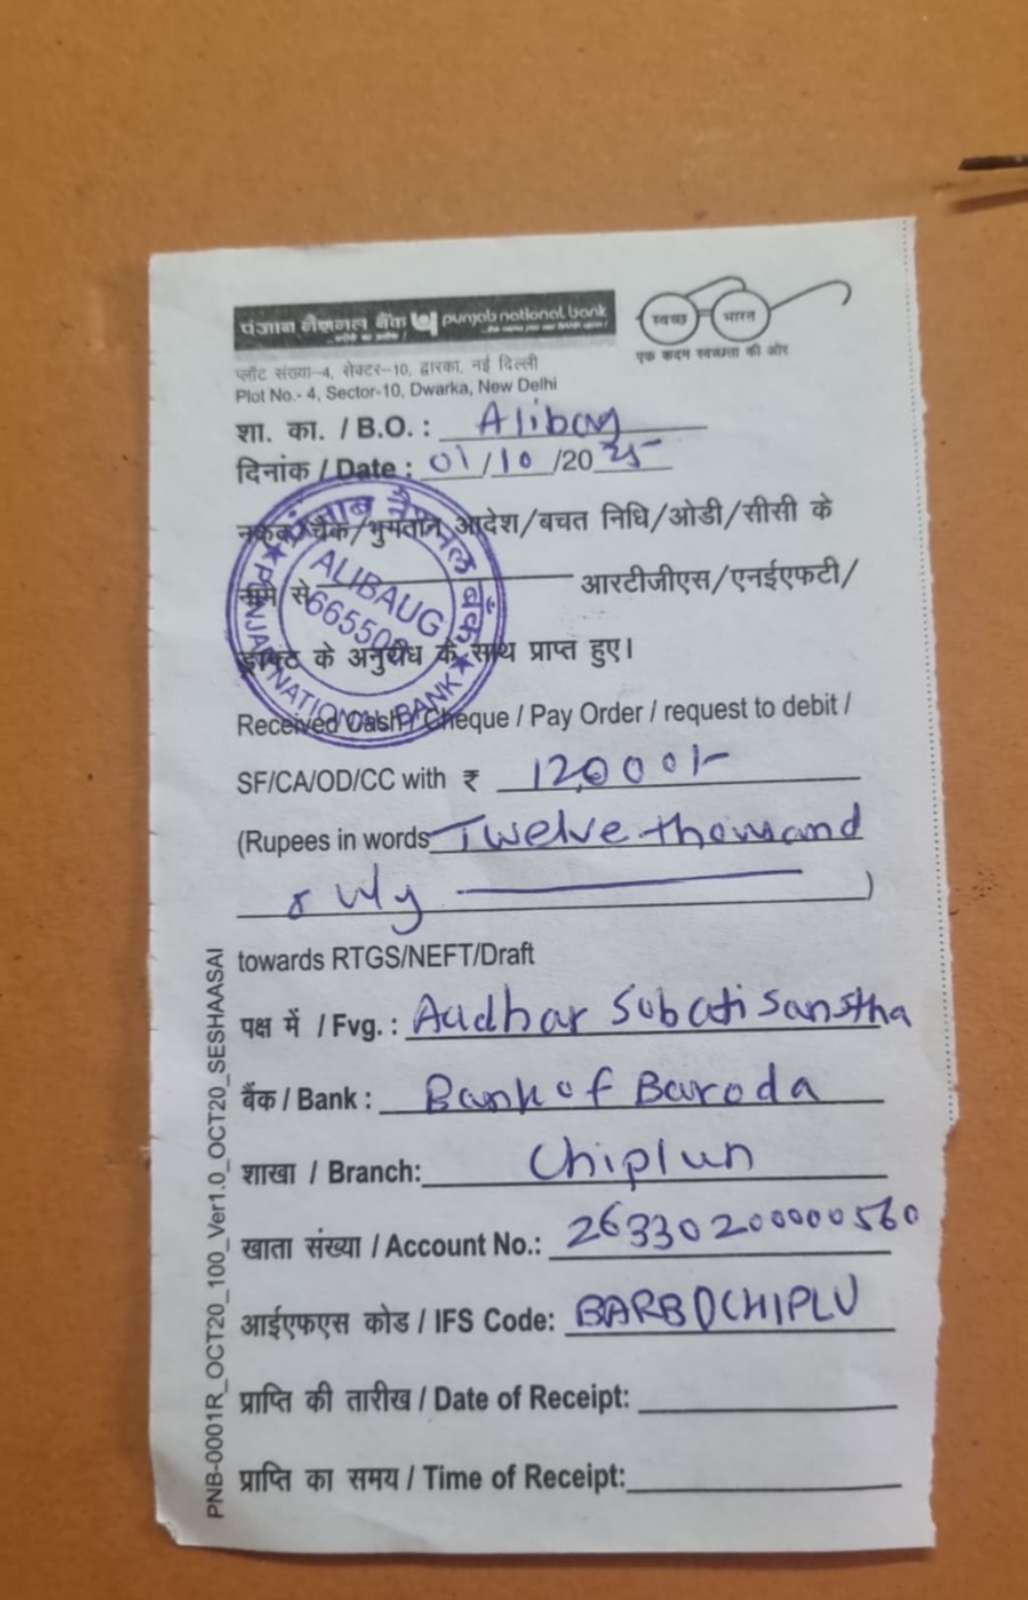 पंजाब नैशनल बैंक punjab national bank
स्वच्छ भारत
एक कदम स्वच्छता की ओर
प्लॉट संख्या-4, सेक्टर-10, द्वारका, नई दिल्ली
Plot No.- 4, Sector-10, Dwarka, New Delhi
शा. का. / B.O. : Alibag
दिनांक / Date : 01/10/2025
नकद/चैक/भुगतान आदेश/बचत निधि/ओडी/सीसी के
नामे से आरटीजीएस/एनईएफटी/
ड्राफ्ट के अनुरोध के साथ प्राप्त हुए।
पंजाब नैशनल बैंक
PUNJAB NATIONAL BANK
ALIBAUG
Received Cash / Cheque / Pay Order / request to debit /
SF/CA/OD/CC with ₹ 12,000/-
(Rupees in words Twelve thousand
only )
towards RTGS/NEFT/Draft
पक्ष में / Fvg. : Aadhar Sobati Sanstha
बैंक / Bank : Bank of Baroda
शाखा / Branch: Chiplun
खाता संख्या / Account No.: 26330200000560
आईएफएस कोड / IFS Code: BARB0CHIPLU
प्राप्ति की तारीख / Date of Receipt:
प्राप्ति का समय / Time of Receipt:
PNB-0001R_OCT20_100_Ver1.0_OCT20_SESHAASAI